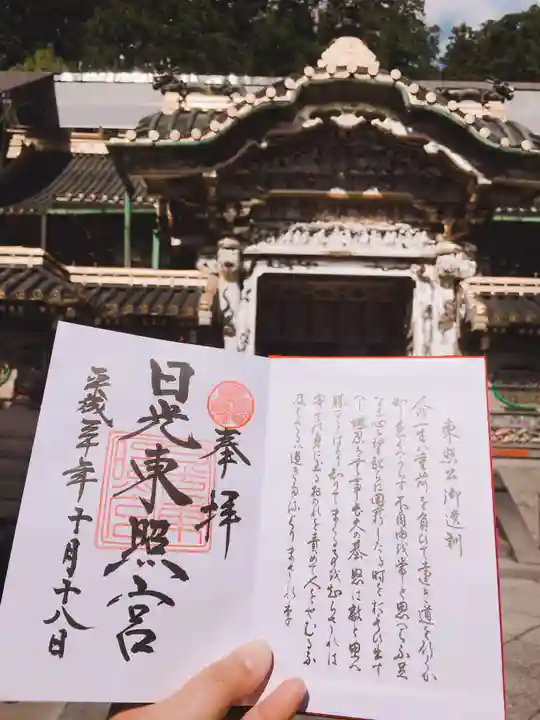 奉拝
日光東照宮
平成三十年十月十八日
東照公御遺訓
人の一生は重荷を負ひて遠き道を行くが
如し急ぐべからず不自由を常と思へば不足
なし心に望起らば困窮したる時を思ひ出す
べし堪忍は無事長久の基怒は敵と思へ
勝つことばかり知てまくる事を知らざれば
害其身に至るおのれを責めて人をせむるな
及ばざるは過ぎたるよりまされり